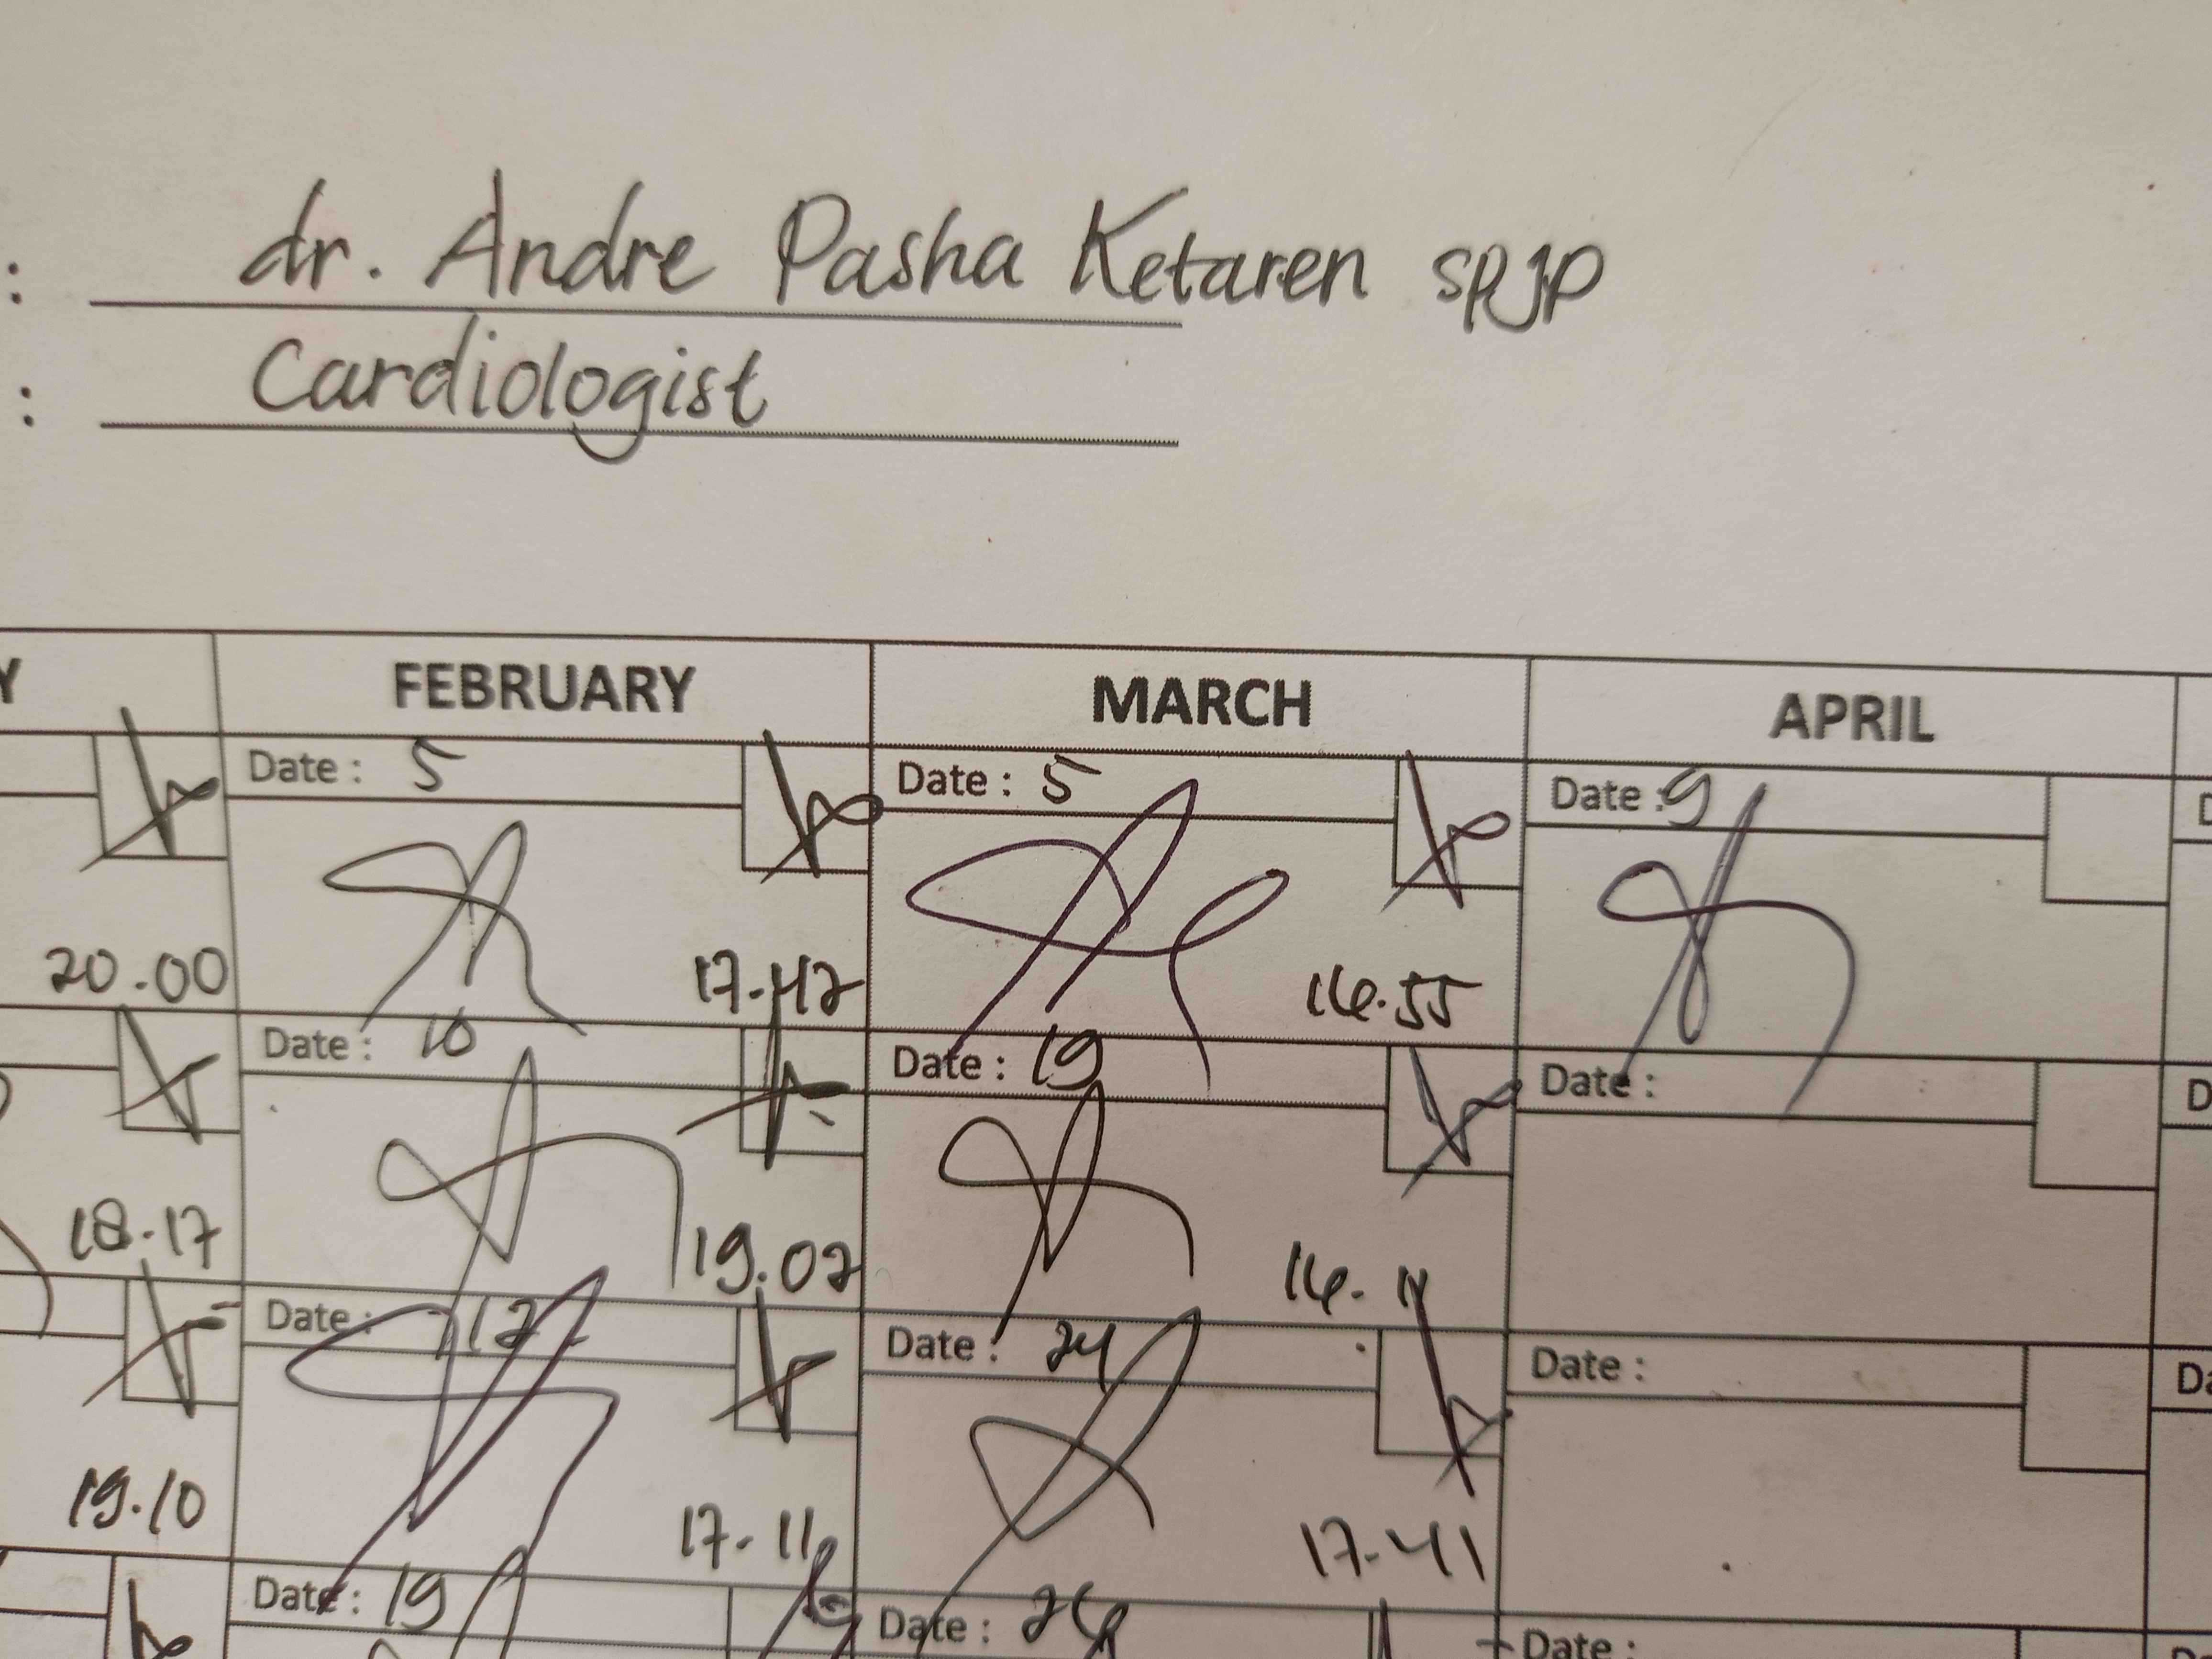 : dr. Andre Pasha Ketaren SpJP
: Cardiologist
Y FEBRUARY MARCH APRIL
Date : 5 Date : 5 Date : 9
20.00 17.42 16.55
Date : 10 Date : 19 Date :
18.17 19.02 16.11
Date : 12 Date : 24 Date :
19.10 17.11 17.41
Date : 19 Date : 26 Date :